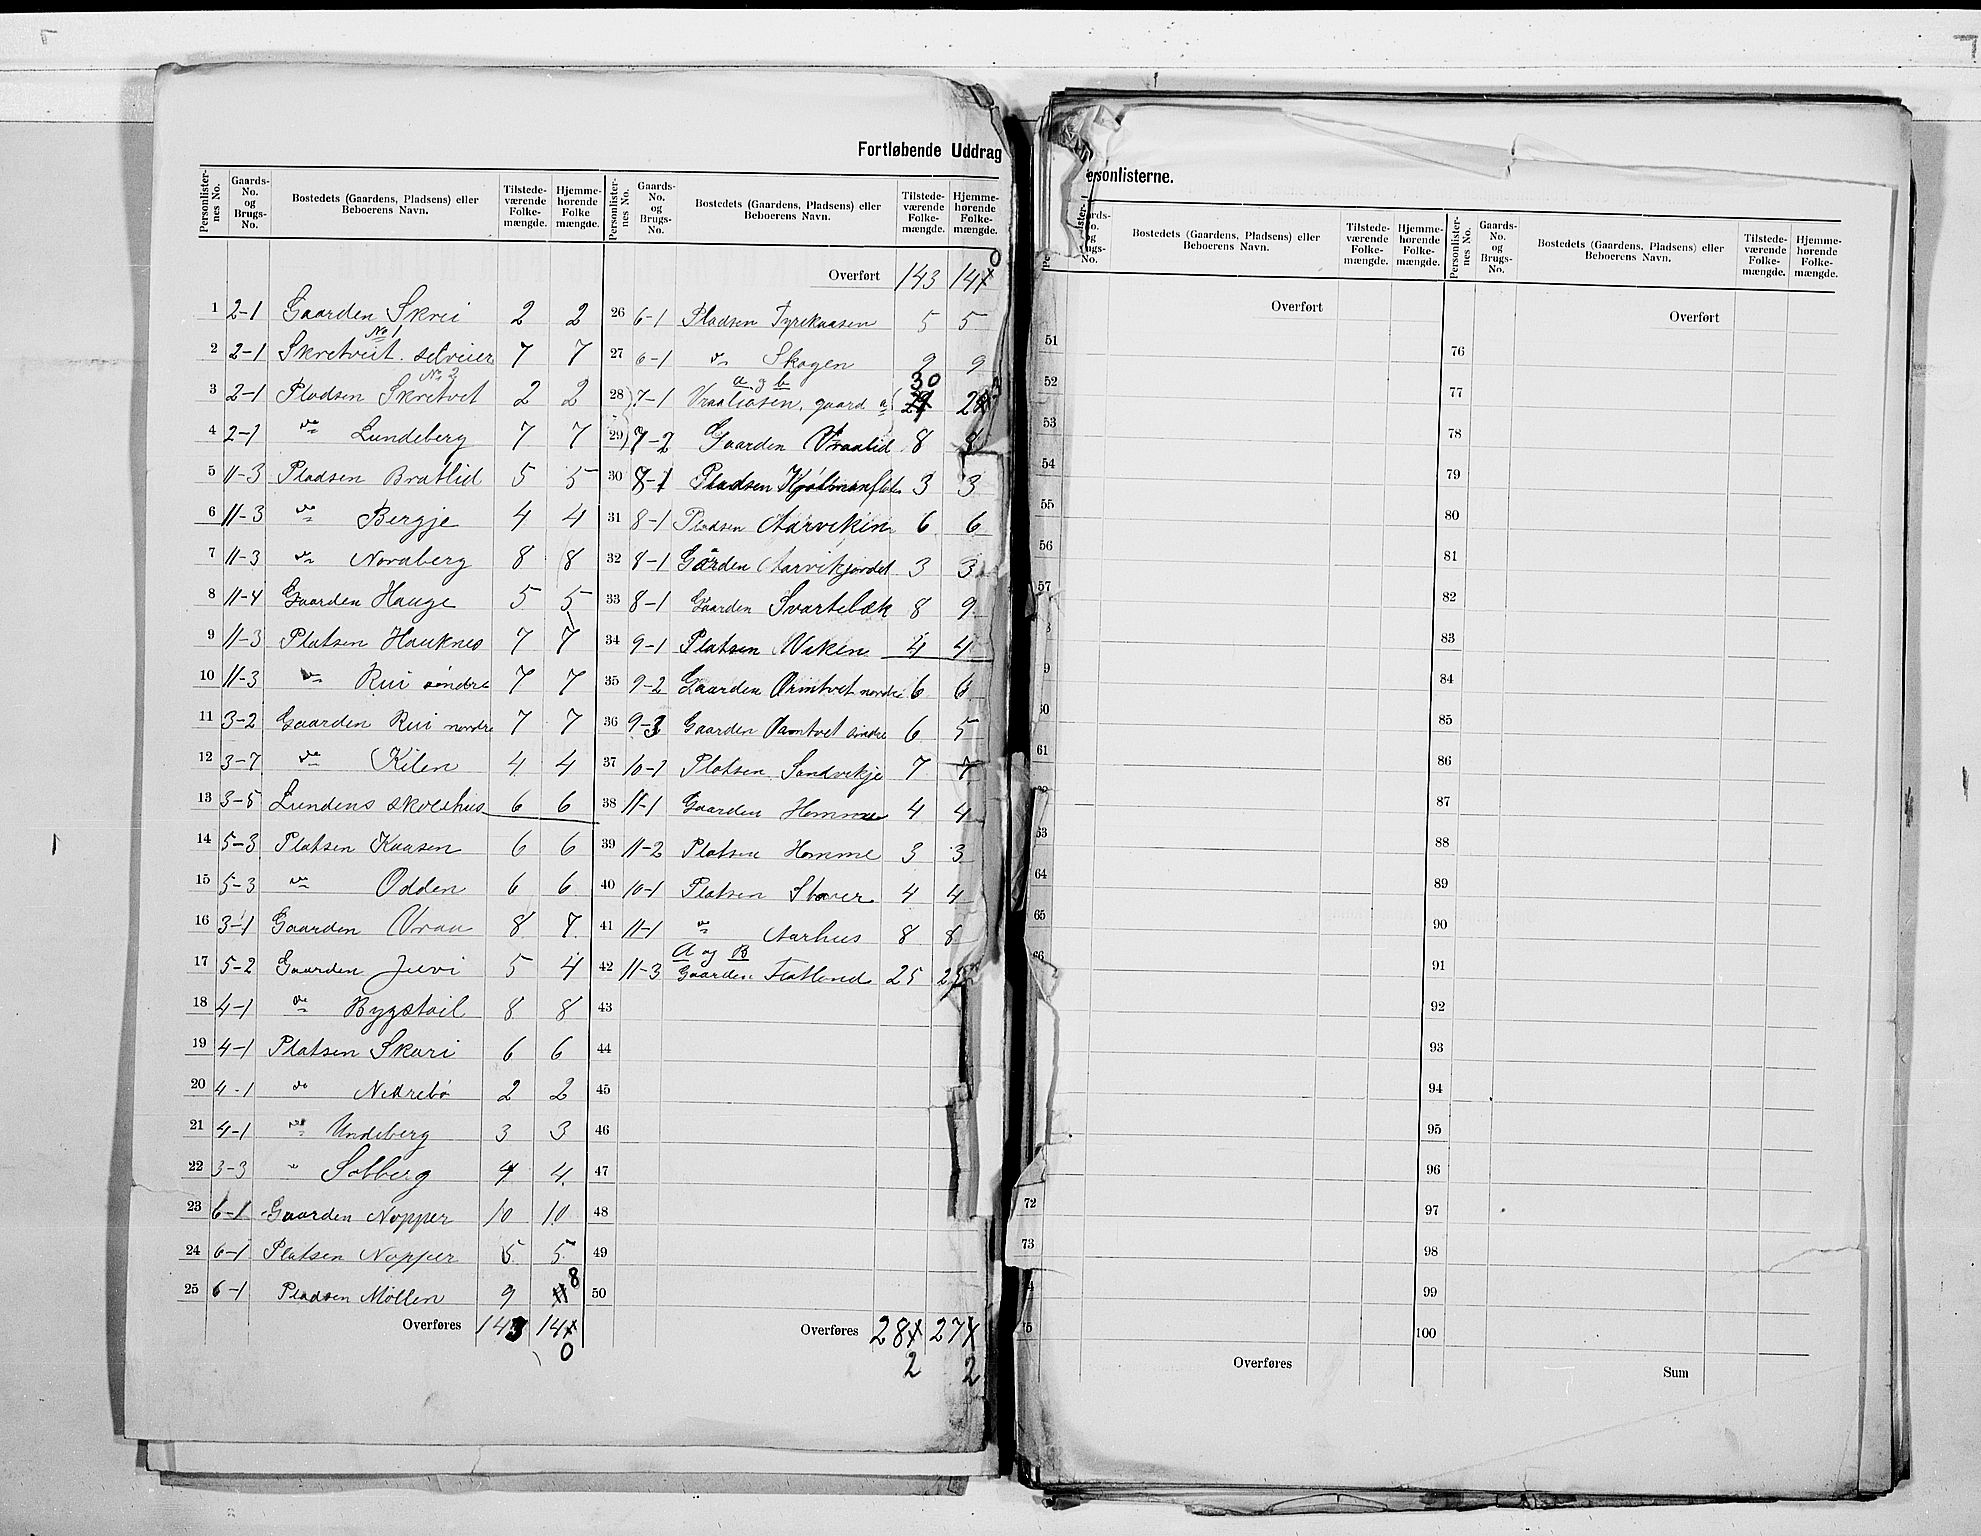 Fortløbende Uddrag
Personlister-nes No. Gaards-No. og Brugs-No. Bostedets (Gaardens, Pladsens) eller Beboerens Navn. Tilstede-værende Folke-mængde. Hjemme-hørende Folke mængde.
1 2-1 Gaarden Skrei 2 2
No 1
2 2-1 Skretveit selveier 7 7
No 2
3 2-1 Pladsen Skretvet 2 2
4 2-1 do Lundeberg 7 7
5 11-3 Pladsen Bratlid 5 5
6 11-3 do Bergje 4 4
7 11-3 do Noraberg 8 8
8 11-4 Gaarden Hauge 5 5
9 11-3 Platsen Hauknes 7 7
10 11-3 do Rui søndre 7 7
11 3-2 Gaarden Rui nordre 7 7
12 3-7 do Kilen 4 4
13 3-5 Lundens skolehus 6 6
14 5-3 Platsen Kaasen 6 6
15 5-3 do Odden 6 6
16 3-1 Gaarden Vraa 8 7
17 5-2 Gaarden Juvi 5 4
18 4-1 do Bygstøil 8 8
19 4-1 Platsen Skori 6 6
20 4-1 do Nedrebø 2 2
21 4-1 do Undeberg 3 3
22 3-3 " Solberg 4 4
23 6-1 Gaarden Nopper 10 10
24 6-1 Platsen Nopper 5 5
8
25 6-1 Pladsen Möllen 9 11
Overføres 143 14
0
Personlister-nes No. Gaards-No. og Brugs-No. Bostedets (Gaardens, Pladsens) eller Beboerens Navn. Tilstede-værende Folke-mængde. Hjemme-hørende Folke-mængde.
0
Overført 143 14
26 6-1 Pladsen Tyrekaasen 5 5
27 6-1 do Skogen 9 9
a og b 30
28 7-1 Vraaliosen, gaard a
29 7-2 Gaarden Vraalid 8 8
30 8-1 Pladsen 3 3
31 8-1 Pladsen Aarvikin 6 6
32 8-1 Gården Aarvikjordet 3 3
33 8-1 Gaarden Svartebæk 8 9
34 9-1 Platsen Viken 4 4
35 9-2 Gaarden Ormtvet nordre 6 6
36 9-3 Gaarden Ormtvet søndre 6 5
37 10-1 Platsen Sandvikje 7 7
38 11-1 Gaarden Homme 4 4
39 11-2 Platsen Homme 3 3
40 10-1 Platsen Staver 4 4
41 11-1 do Aarhus 8 8
A og B
42 11-3 Gaarden Flatland 25
43
44
45
46
47
48
49
50
Overføres 28 27
2 2
ersonlisterne.
Bostedets (Gaardens, Pladsens) eller Beboerens Navn. Tilstede-værende Folke-mængde. Hjemme-hørende Folke-mængde.
Overført
51
52
53
54
55
56
57
61
64
65
72
73
Overføres
Personlister-nes No. Gaards-No. og Brugs-No. Bostedets (Gaardens, Pladsens) eller Beboerens Navn. Tilstede-værende Folke-mængde. Hjemme-hørende Folke-mængde.
Overført
76
77
78
79
80
81
82
83
84
85
86
87
88
89
90
91
92
93
94
95
96
97
98
99
100
Sum